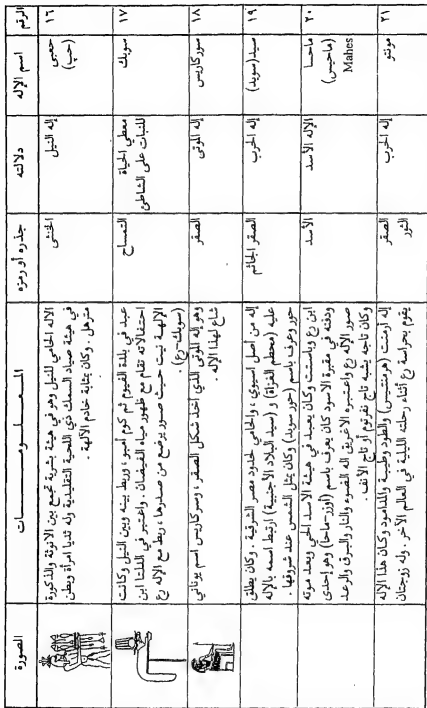 الرقم
اسم الإله
دلالته
جذره أو رمزه
المعلومات
الصورة
١٦
حعبى
(حب)
إله النيل
الخنثى
الإله الحامي للنيل وهو في هيئة بشرية تجمع بين الأنوثة والذكورة
في هيئة صياد السمك ذي اللحية التقليدية وله ثديا امرأة وبطن
مترهل . وكان بمثابة خادم الآلهة .
١٧
سوبك
معطي الحياة
للنبات على الشاطئ
التمساح
عبد في بلدة الفيوم ثم كوم أمبو، وربط بينه وبين النيل وكانت
احتفالاته تقام مع ظهور مياه الفيضان . واعتبر في الدلتا ابن
الإلهة نيت حيث صور يرضع من صدرها ، ربط مع الإله رع
(سوبك-رع) .
١٨
سوركاريس
إله الموتى
الصقر
وهو إله الموتى الذي أخذ شكل الصقر ، وسركاريس اسم يوناني
شاع لهذا الإله .
١٩
سبد (سوبد)
إله الحرب
الصقر الجاثم
إله من أصل آسيوي ، والحامي لحدود مصر الشرقية . وكان يطلق
عليه (محطم الغزاة) و (سيد البلاد الأجنبية) ارتبط اسمه بالإله
حور وعرف باسم (حور سوبد) وكان يمثل الشمس عند شروقها .
٢٠
ماحسا
(ماحيس)
Mahes
الإله الأسد
الأسد
ابن رع وباستت وكان يعبد في هيئة الأسد الحي وبعد موته
ودفنه في مقبرة الأسود كان يعرف باسم (أوزر-ماحا) وهو إحدى
صور الإله رع واعتبره الإغريق إله الضوء والنار والبرق والرعد
وكان تاجه يشبه تاج نفرتوم أو تاج الآتف .
٢١
مونتو
إله الحرب
الصقر
الثور
إله أرمنت (هرمنتيس) والطود وطيبة والمدامود وكان هذا الإله
يقوم بحراسة رع أثناء رحلته الليلية في العالم الآخر . وله زوجتان